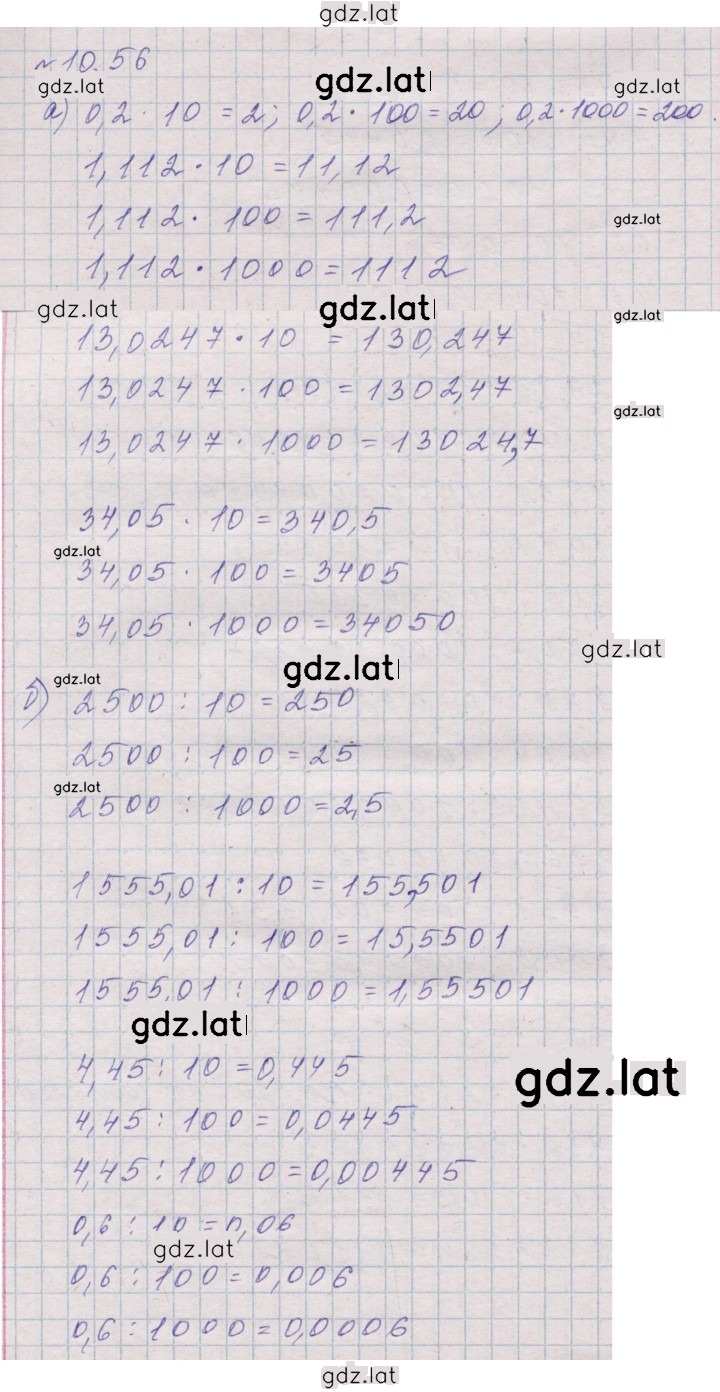 gdz.lat
№10.56
gdz.lat gdz.lat gdz.lat
а) 0,2 · 10 = 2; 0,2 · 100 = 20; 0,2 · 1000 = 200.
1,112 · 10 = 11,12
1,112 · 100 = 111,2
gdz.lat
1,112 · 1000 = 1112
gdz.lat gdz.lat gdz.lat
13,0247 · 10 = 130,247
13,0247 · 100 = 1302,47
gdz.lat
13,0247 · 1000 = 13024,7
34,05 · 10 = 340,5
gdz.lat
34,05 · 100 = 3405
34,05 · 1000 = 34050
gdz.lat
gdz.lat
gdz.lat
б) 2500 : 10 = 250
2500 : 100 = 25
gdz.lat
2500 : 1000 = 2,5
1555,01 : 10 = 155,501
1555,01 : 100 = 15,5501
1555,01 : 1000 = 1,55501
gdz.lat
4,45 : 10 = 0,445
gdz.lat
4,45 : 100 = 0,0445
4,45 : 1000 = 0,00445
0,6 : 10 = 0,06
gdz.lat
0,6 : 100 = 0,006
0,6 : 1000 = 0,0006
gdz.lat